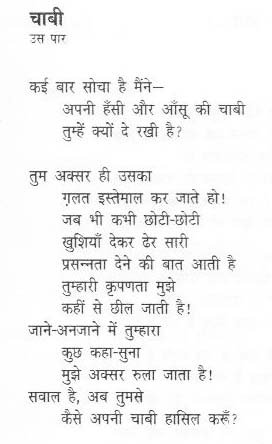 चाबी
उस पार
कई बार सोचा है मैंने—
अपनी हँसी और आँसू की चाबी
तुम्हें क्यों दे रखी है?
तुम अक्सर ही उसका
ग़लत इस्तेमाल कर जाते हो!
जब भी कभी छोटी-छोटी
खुशियाँ देकर ढेर सारी
प्रसन्नता देने की बात आती है
तुम्हारी कृपणता मुझे
कहीं से छील जाती है!
जाने-अनजाने में तुम्हारा
कुछ कहा-सुना
मुझे अक्सर रुला जाता है!
सवाल है, अब तुमसे
कैसे अपनी चाबी हासिल करूँ?